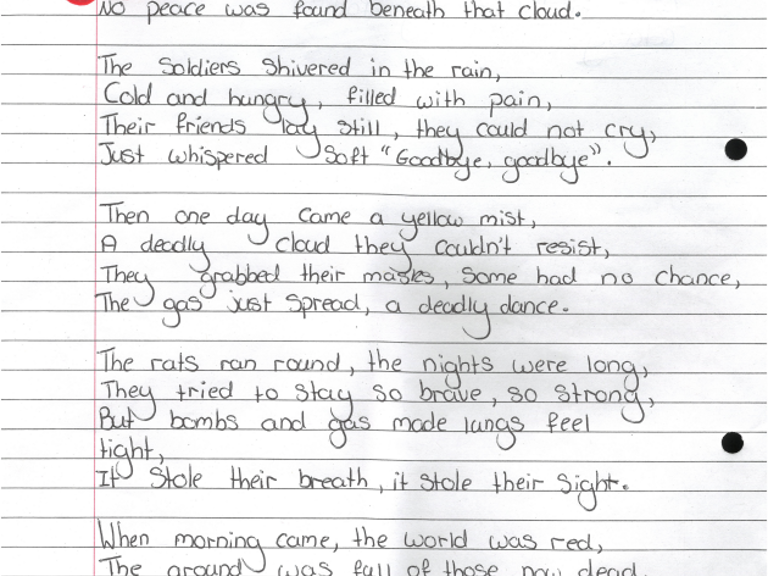 No peace was found beneath that cloud.
The Soldiers Shivered in the rain,
Cold and hungry, filled with pain,
Their friends lay still, they could not cry,
Just whispered Soft "Goodbye, goodbye".
Then one day Came a yellow mist,
A deadly Cloud they couldn't resist,
They grabbed their masks, Some had no chance,
The gas just Spread, a deadly dance.
The rats ran round, the nights were long,
They tried to Stay So brave, so Strong,
But bombs and gas made lungs feel
tight,
It Stole their breath, it stole their Sight.
When morning came, the world was red,
The ground was full of those now dead.